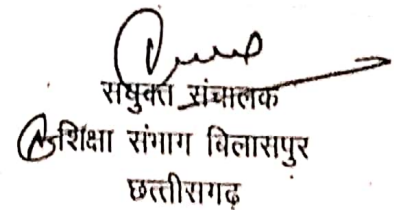 संयुक्त संचालक
शिक्षा संभाग बिलासपुर
छत्तीसगढ़